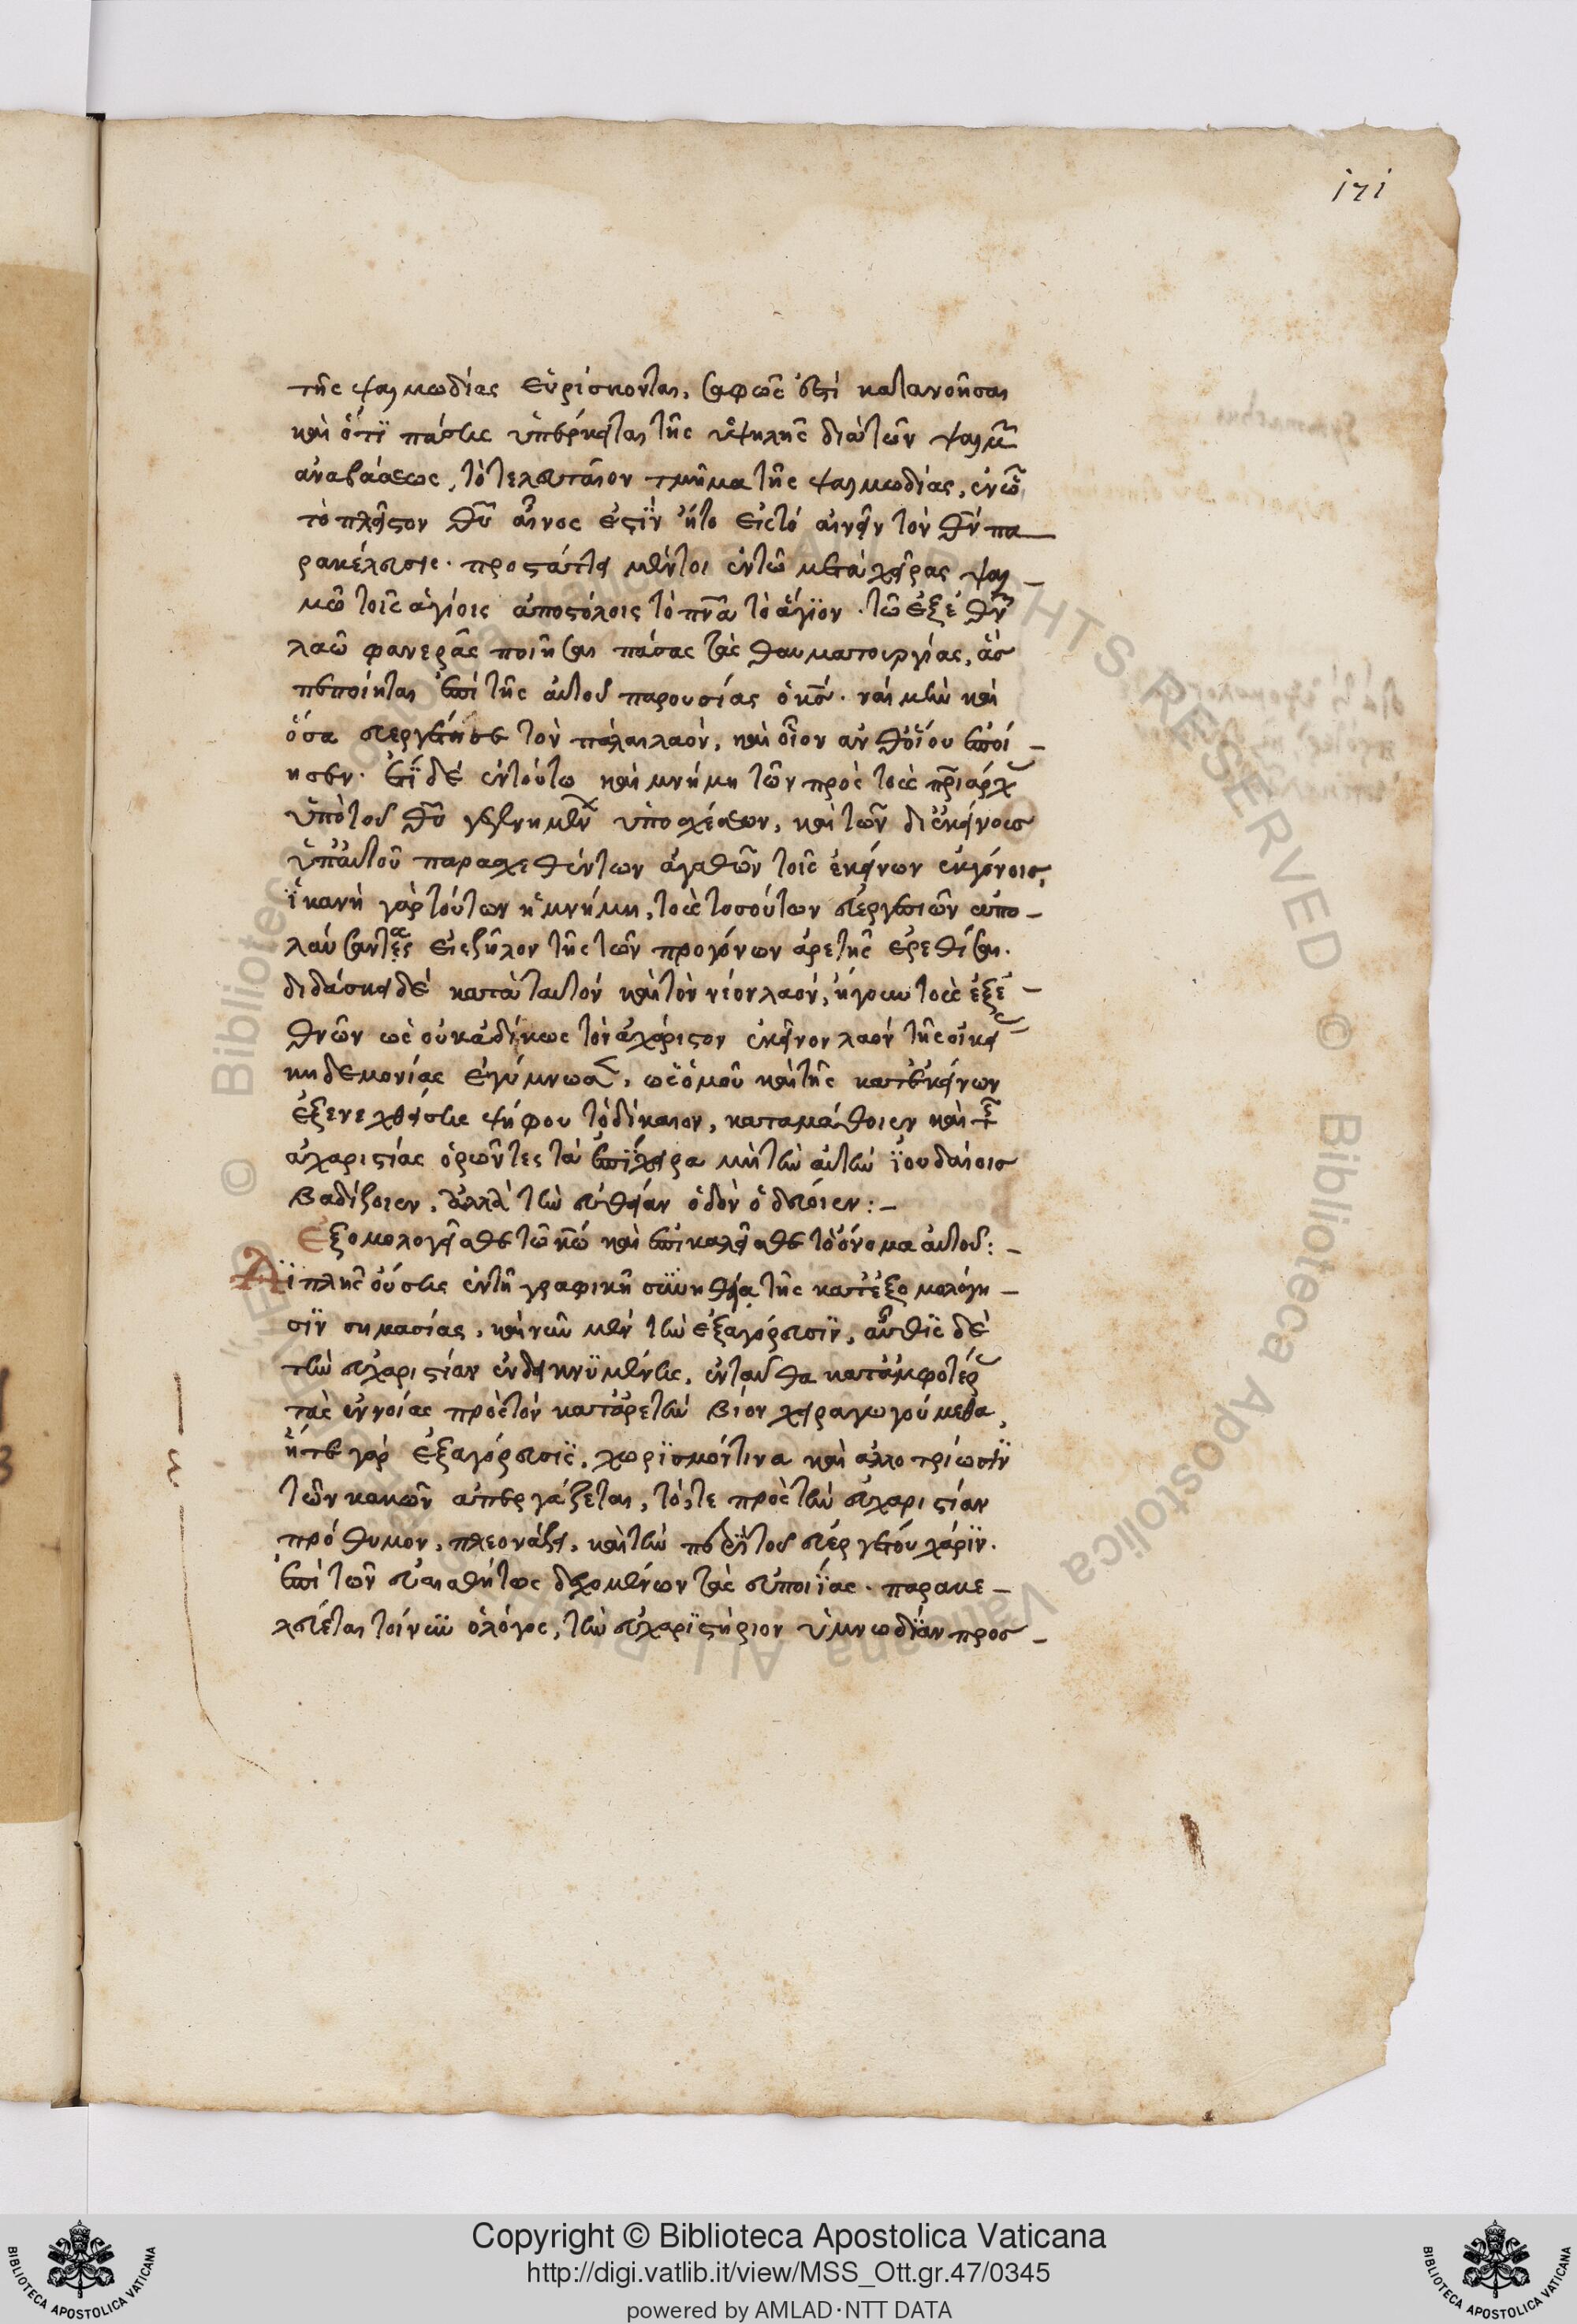 171
τῆς ψαλμωδίας εὑρίσκονται, σαφῶς ἐστὶ κατανοῆσαι
καὶ ὅτϊ πάσης ὑπέρκειται τῆς ὑψηλῆς διὰ τῶν ψαλμ
ἀναβάσεως, τὸ τελευταῖον τμῆμα τῆς ψαλμωδίας, ἐν ὧ
τὸ πλεῖστον θῦ αἶνος ἐστϊν ἤτο εἰς τὸ αἰνεῖν τὸν θν πα
ρακέλευσις. προστάττει μέντοι ἐν τῶ μετὰ χεῖρας ψαλ
μῶ τοῖς ἁγίοις ἀποστόλοις τὸ πνᾶ τὸ ἅγϊον. τῶ ἐξ ἐθνῶν
λαῶ φανερὰς ποιῆσαι πάσας τὰς θαυματουργίας, ἃσ
πεποίηται ἐπὶ τῆς αὐτοῦ παρουσίας ὁ κσ. ναὶ μὴν καὶ
ὅσα εὐεργέτησε τὸν πάλαι λαὸν, καὶ οἷον ἀνθ οἵου ἐποί
ησεν. ἔτϊ δὲ ἐν τούτω καὶ μνήμη τῶν πρὸς τοὺς πριάρχ
ὑπὸ τοῦ θῦ γεγενημέν ὑποσχέσεων, καὶ τῶν δι ἐκείνουσ
ὑπ αὐτοῦ παρασχεθέντων ἀγαθῶν τοῖς ἐκείνων ἐκγόνοισ,
ἱκανὴ γὰρ τούτων ἡ μνήμη, τοὺς τοσούτων εὐεργεσιῶν ἀπο
λαύσαντας εἰς ζῆλον τῆς τῶν προγόνων ἀρετῆς ἐρεθίσαι.
διδάσκει δὲ κατὰ ταυτὸν καὶ τὸν νέον λαὸν, ἤγουν τοὺς ἐξ ἐ
θνῶν ὡς οὐκ ἀδίκως τὸν ἀχάριστον ἐκεῖνον λαὸν τῆς οἰκεί
κηδεμονίας ἐγύμνωσ, ὡς ὁμοῦ καὶ τῆς κατ ἐκείνων
ἐξενεχθείσης ψήφου τὸ δίκαιον, καταμάθοιεν καὶ τ
ἀχαριστίας ὁρῶντες τὰ ἐπϊχειρα μὴ τὴν αὐτὴν ϊουδαίοισ
βαδίζοιεν, ἀλλὰ τὴν εὐθεῖαν ὁδὸν ὁδεύοιεν:
Ἐξομολογεῖσθε τῶ κω καὶ ἐπικαλεῖσθε τὸ ὄνομα αὐτοῦ:
Διπλῆς οὔσης ἐν τῆ γραφικῆ συνηθεία τῆς κατ ἐξομολόγη
σϊν σημασίας, καὶ νῦν μὲν τὴν ἐξαγόρευσϊν, αὖθϊς δὲ
τὴν εὐχαριστίαν ἐνδεικνϋμένης, ἐνταῦθα κατ ἀμφοτέρ
τὰς ἐννοίας πρὸς τὸν κατ ἀρετὴν βίον χειραγωγούμεθα,
ἥτε γὰρ ἐξαγόρευσϊς, χωρϊσμόν τινα καὶ ἀλλοτρίωσϊν
τῶν κακῶν ἀπεργάζεται, τό, τε πρὸς τὴν εὐχαριστίαν
πρόθυμον, πλεονάζει, καὶ τὴν παρὰ τοῦ εὐεργέτου χάρϊν.
ἐπὶ τῶν εὐαισθήτως δεχομένων τὰς εὐποιΐας. παρακε
λεύεται τοίνυν ὁ λόγος, τὴν εὐχαρϊστήριον ὑμνωδίαν προσ
Copyright © Biblioteca Apostolica Vaticana
http://digi.vatlib.it/view/MSS_Ott.gr.47/0345
powered by AMLAD·NTT DATA
BIBLIOTECA APOSTOLICA VATICANA
BIBLIOTECA APOSTOLICA VATICANA